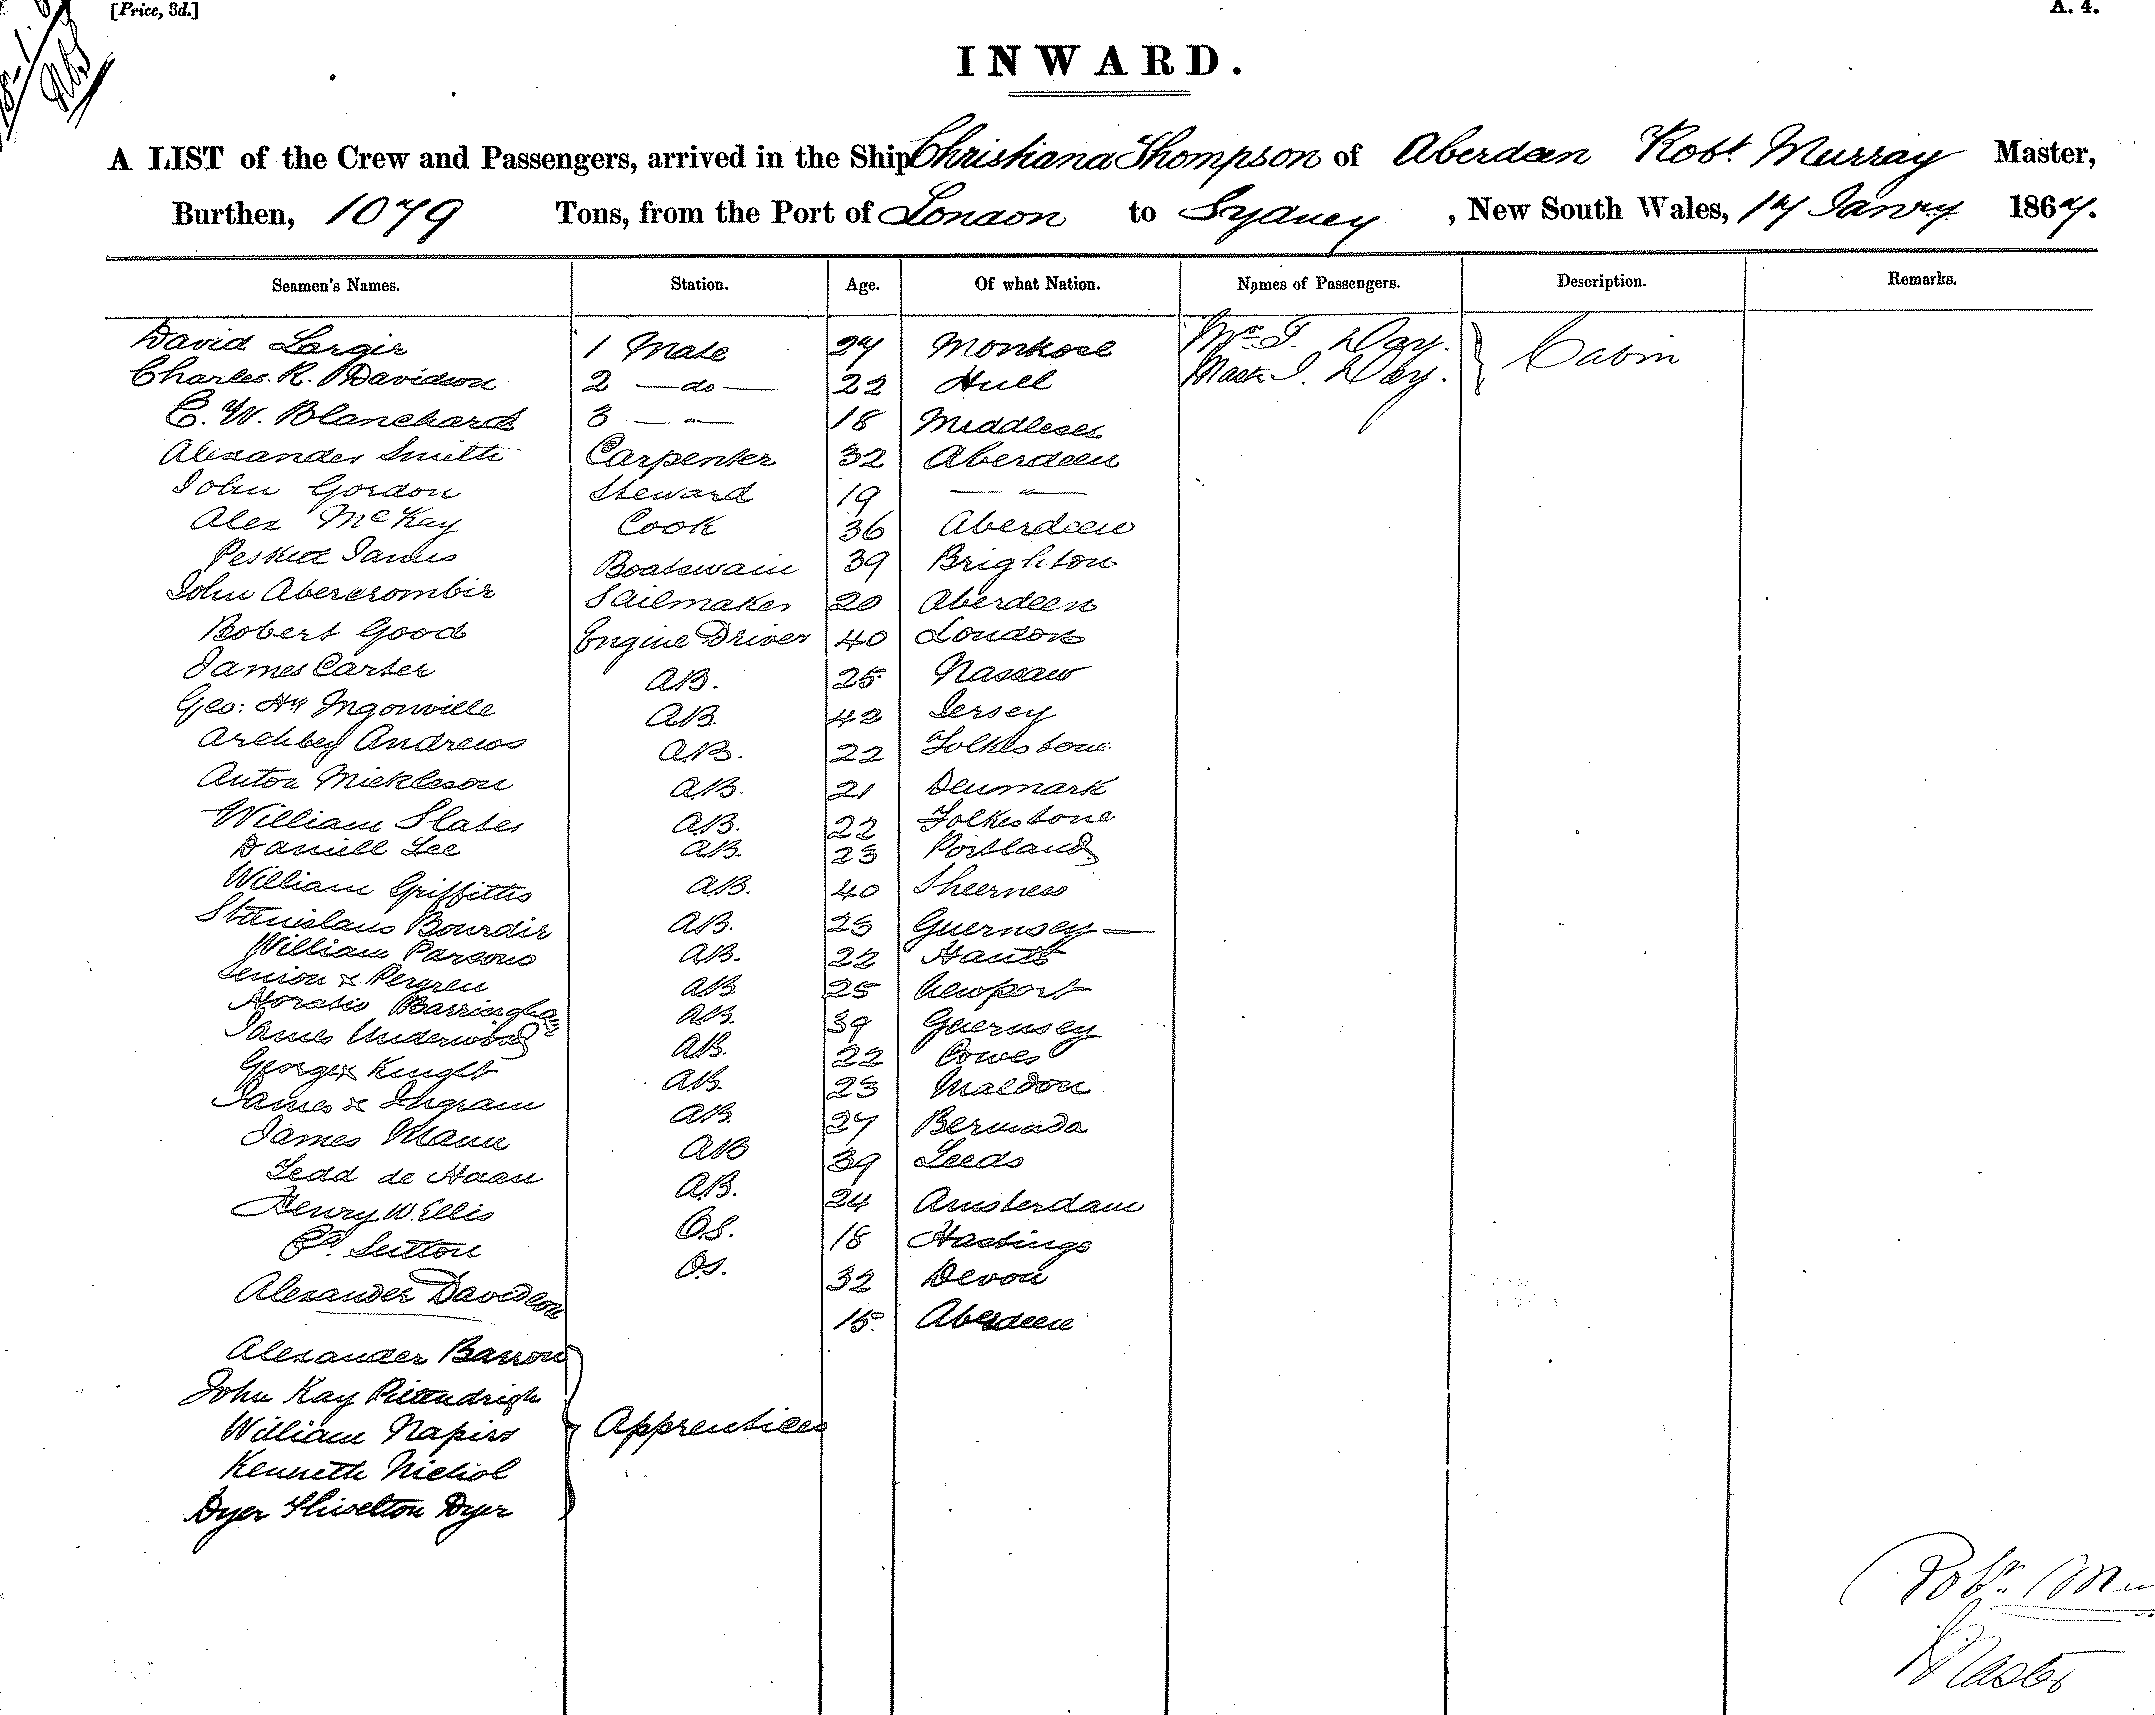 [Price, 3d.]
A. 4.
INWARD.
A LIST of the Crew and Passengers, arrived in the Ship Christiana Thompson of Aberdeen Robt Murray Master,
Burthen, 1079 Tons, from the Port of London to Sydney, New South Wales, 17 Janry 1867.
Seamen's Names. Station. Age. Of what Nation. Names of Passengers. Description. Remarks.
David Largie 1 Mate 27 Montrose Mrs T. Day. Cabin
Charles R. Davidson 2 — do — 22 Hull Mast. I. Day.
C. W. Blanchard 3 — " — 18 Middlesex
Alexander Smith Carpenter 32 Aberdeen
John Gordon Steward 19 — " —
Alex McKay Cook 36 Aberdeen
Peskett James Boatswain 39 Brighton
John Abercrombie Sailmaker 20 Aberdeen
Robert Good Engine Driver 40 London
James Carter AB. 25 Nassaw
Geo: Hy Ingouville AB 42 Jersey
Andrews AB. 22 Folkestone
Anton Mickleson AB. 21 Denmark
William Slater AB. 22 Folkestone
Daniell Lee AB. 23 Portland
William Griffitts AB. 40 Sheerness
Stanislaus Bourdie AB. 23 Guernsey —
William Parsons AB. 22 Hants
AB 25 Newport
Horatio Barringham AB. 39 Guernsey
James Underwood AB. 22 Cowes
George Knight AB. 23 Maldon
James Ingram AB. 27 Bermuda
James Mann AB 39 Leeds
de Haan AB. 24 Amsterdam
Henry W. Ellis OS. 18 Hastings
Sutton OS. 32 Devon
Alexander Davidson 15. Aberdeen
Alexander Barron
John Kay Pittendrigh
William Napier Apprentices
Kenneth Nichol
Dyer Thiselton Dyer
Robt. Mu
Master